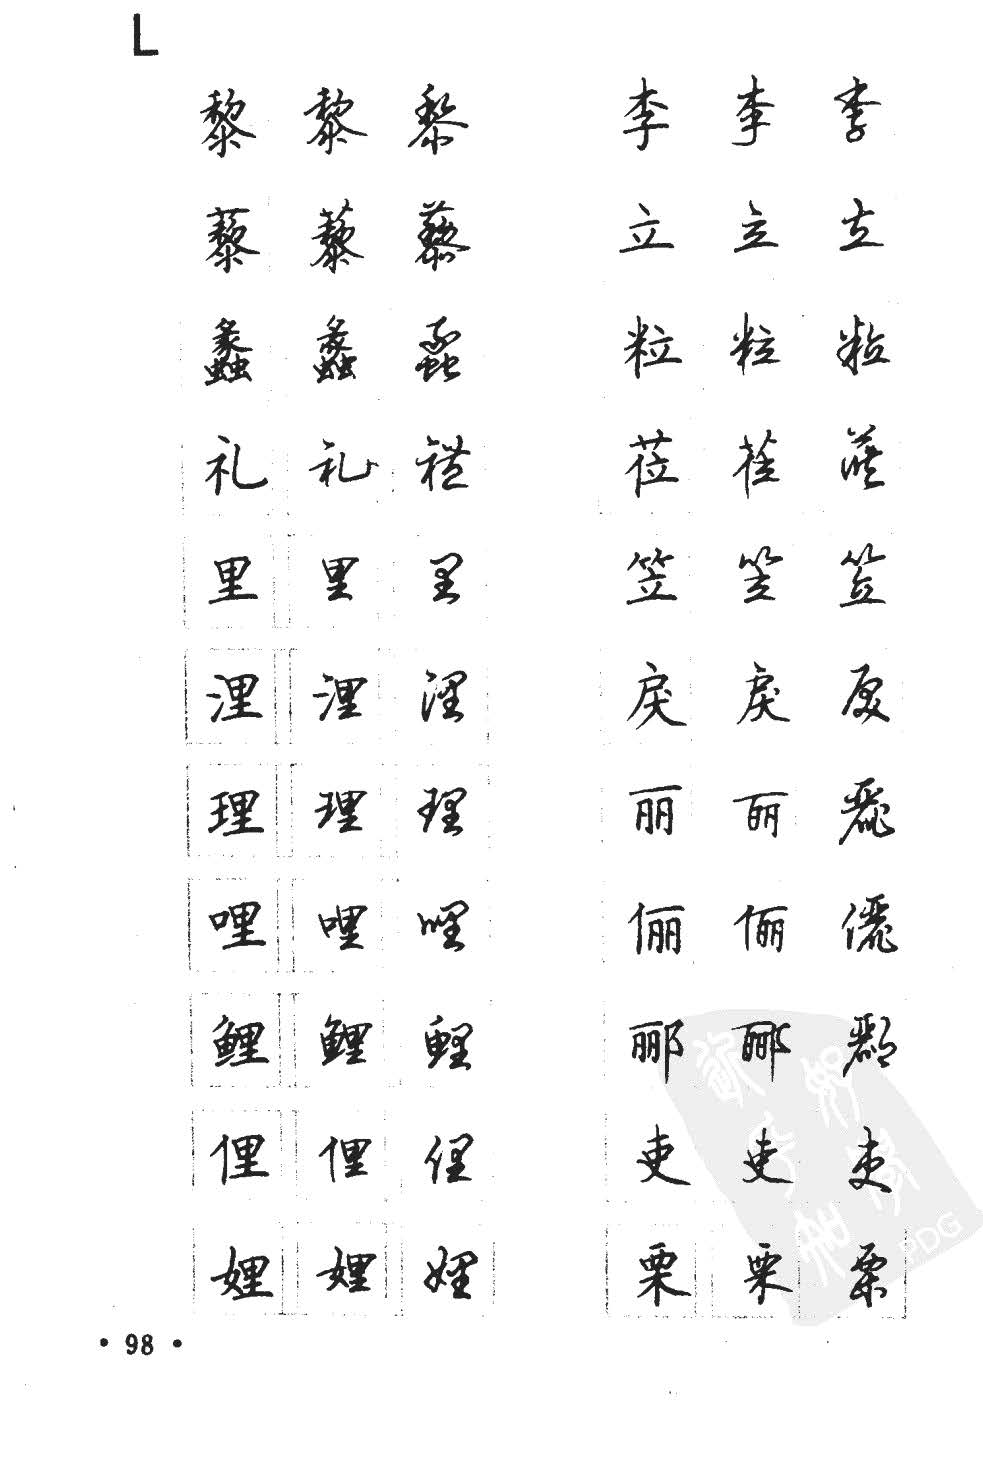 L
黎 黎 黎 李 李 李
藜 藜 藜 立 立 立
蠡 蠡 蠡 粒 粒 粒
礼 礼 禮 莅 莅 蒞
里 里 里 笠 笠 笠
浬 浬 浬 戾 戾 戾
理 理 理 丽 丽 麗
哩 哩 哩 俪 俪 儷
鲤 鲤 鲤 郦 郦 酈
俚 俚 俚 吏 吏 吏
娌 娌 娌 栗 栗 栗
• 98 •
PDG